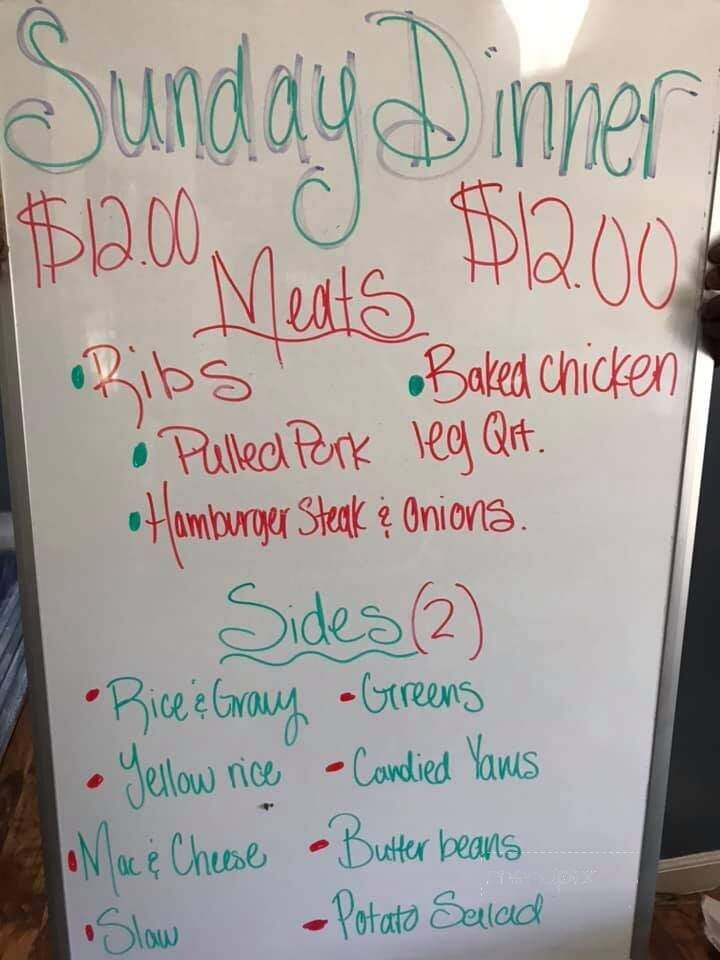 Sunday Dinner
$12.00 $12.00
Meats
• Ribs • Baked Chicken
• Pulled Pork leg Qrt.
• Hamburger Steak & Onions.
Sides (2)
• Rice & Gravy - Greens
• Yellow rice - Candied Yams
• Mac & Cheese - Butter beans
• Slaw - Potato Salad